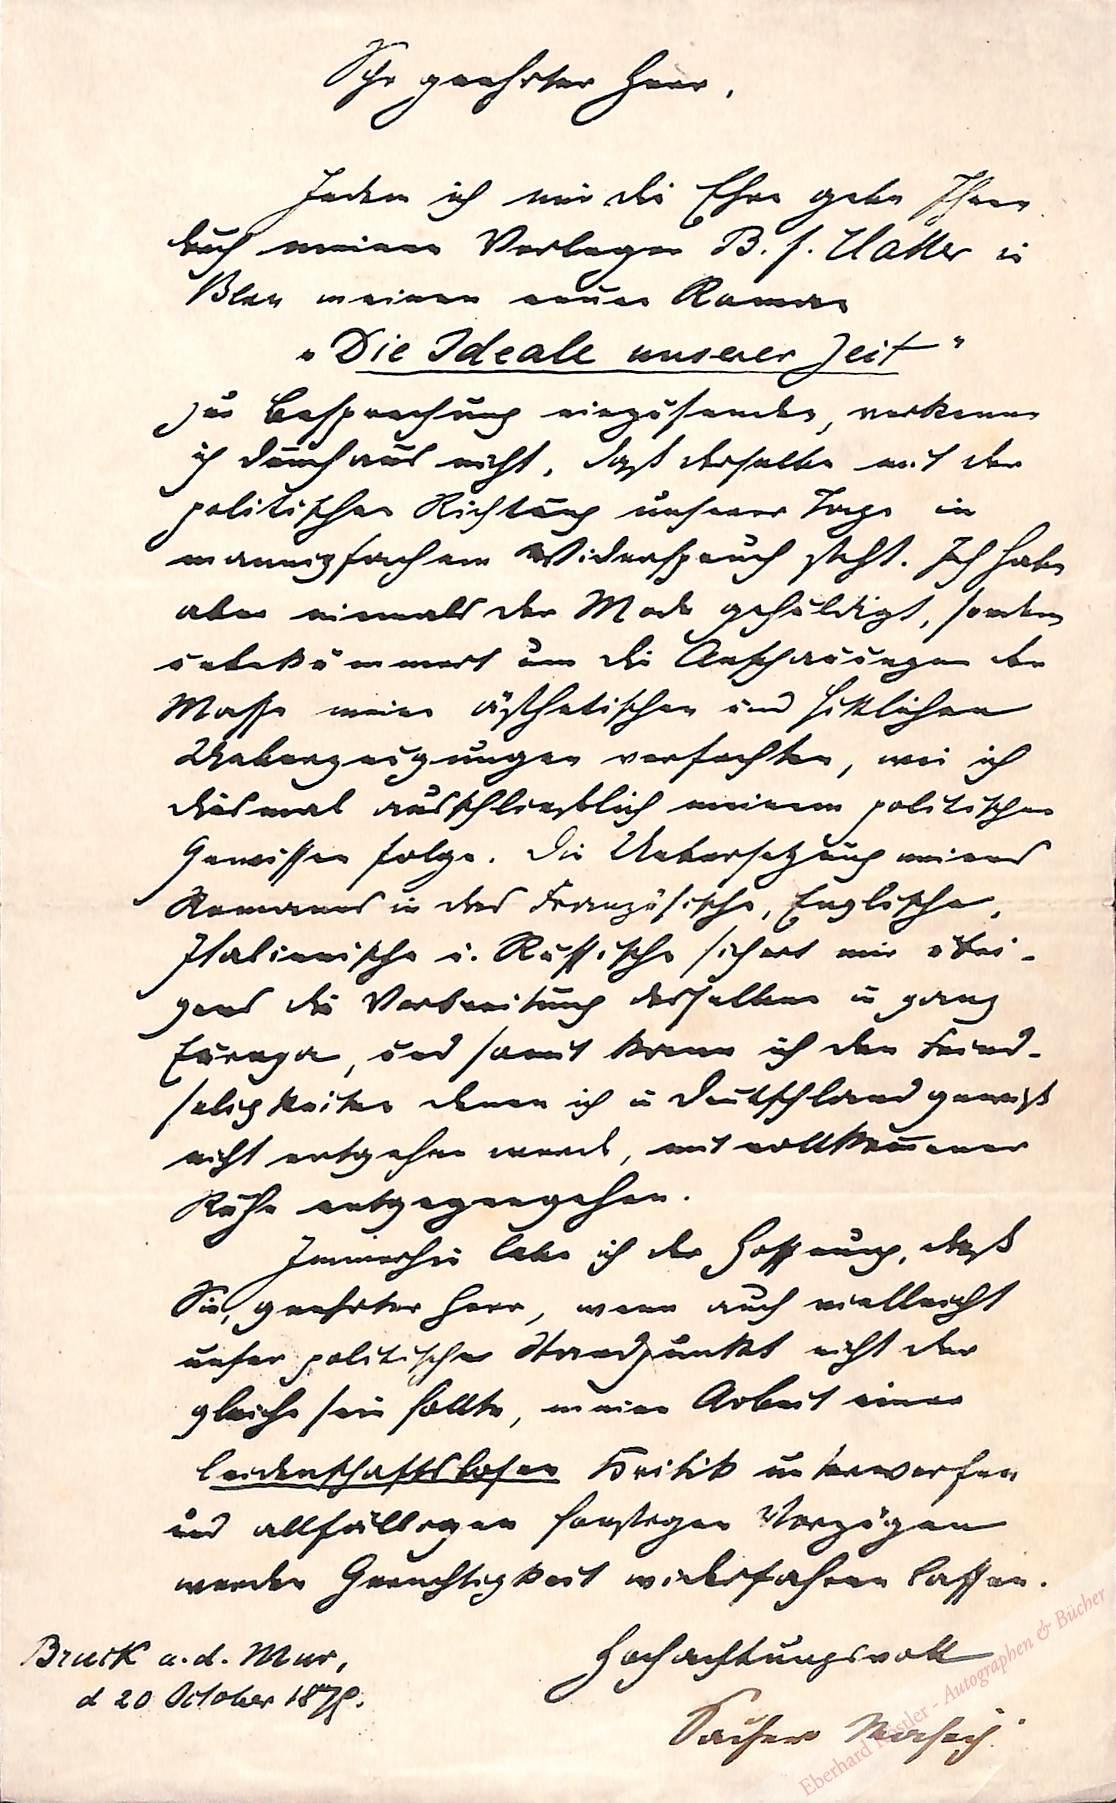 Sehr geehrter Herr,
Indem ich mir die Ehre gebe Ihnen
durch meinen Verleger B. F. Haller in
Bern meinen neuen Roman
„Die Ideale unserer Zeit"
zur Besprechung einzusenden, verkenne
ich durchaus nicht, daß derselbe mit der
politischen Richtung unserer Tage in
mannigfachem Widerspruch steht. Ich habe
aber niemals der Mode gehuldigt, sondern
unbekümmert um die Anschauungen der
Masse meine ästhetischen und sittlichen
Ueberzeugungen verfochten, wie ich
diesmal ausschließlich meinem politischen
Gewissen folge. Die Uebersetzung meines
Romanes in das Französische, Englische,
Italienische u. Russische sichert mir übri-
gens die Verbreitung desselben in ganz
Europa, und somit kann ich den Feind-
seligkeiten denen ich in Deutschland gewiß
nicht entgehen werde, mit vollkommener
Ruhe entgegengehen.
Immerhin lebe ich der Hoffnung, daß
Sie, geehrter Herr, wenn auch vielleicht
unser politischer Standpunkt nicht der
gleiche sein sollte, meine Arbeit einer
leidenschaftslosen Kritik unterwerfen
und allfälligen sonstigen Vorzügen
werden Gerechtigkeit widerfahren lassen.
Hochachtungsvoll
Bruck a. d. Mur,
d 20 October 1875.
Sacher Masoch
Eberhard Köstler - Autographen & Bücher